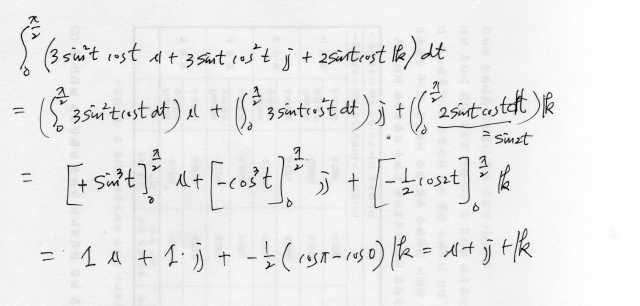 ∫₀^{π/2} (3 sin²t cost 𝕚 + 3 sint cos²t 𝕛 + 2 sint cost 𝕜) dt
= (∫₀^{π/2} 3 sin²t cost dt) 𝕚 + (∫₀^{π/2} 3 sint cos²t dt) 𝕛 + (∫₀^{π/2} 2 sint cost dt) 𝕜
= sin2t
= [+ sin³t]₀^{π/2} 𝕚 + [-cos³t]₀^{π/2} 𝕛 + [-1/2 cos2t]₀^{π/2} 𝕜
= 1 𝕚 + 1·𝕛 + -1/2 (cosπ - cos0) 𝕜 = 𝕚 + 𝕛 + 𝕜